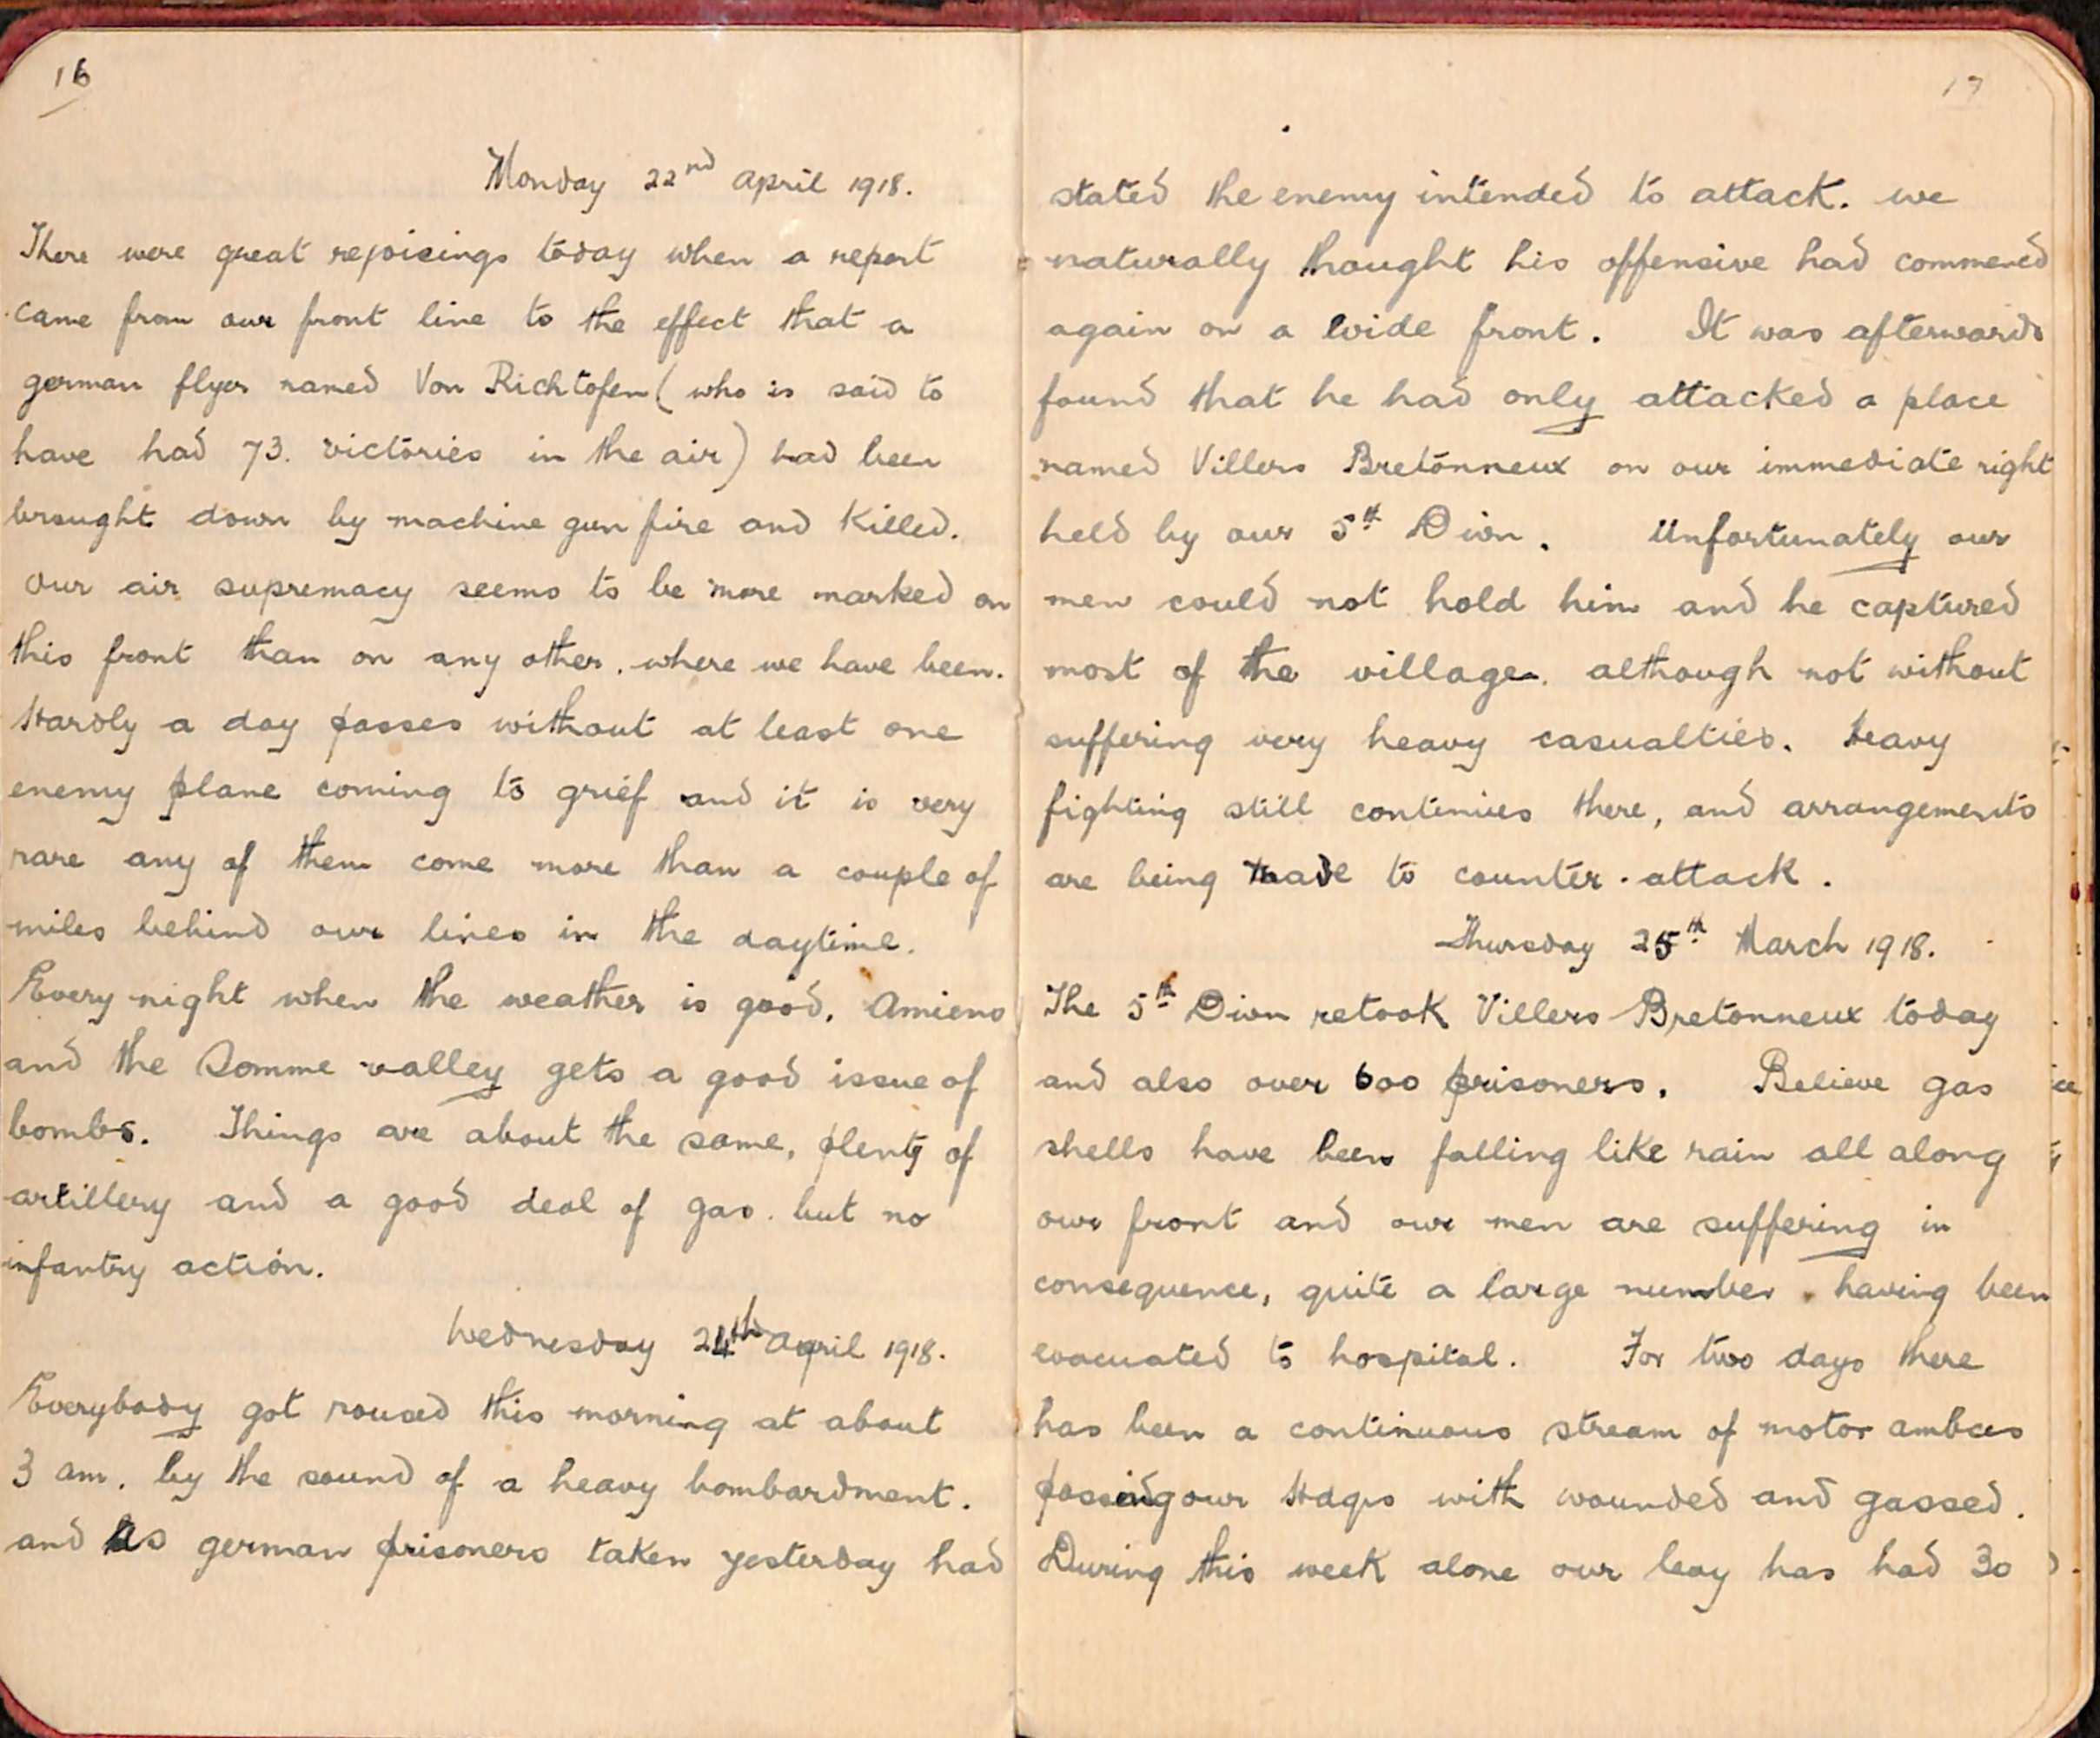 16
Monday 22nd April 1918.
There were great rejoicings today when a report
came from our front line to the effect that a
german flyer named Von Richtofen (who is said to
have had 73. victories in the air) had been
brought down by machine gun fire and killed.
Our air supremacy seems to be more marked on
this front than on any other. where we have been.
Hardly a day passes without at least one
enemy plane coming to grief and it is very
rare any of them come more than a couple of
miles behind our lines in the daytime.
Every night when the weather is good, Amiens
and the Somme valley gets a good issue of
bombs. Things are about the same, plenty of
artillery and a good deal of gas. but no
infantry action.
Wednesday 24th April 1918.
Everybody got roused this morning at about
3 am. by the sound of a heavy bombardment.
and as german prisoners taken yesterday had
17
stated the enemy intended to attack. we
naturally thought his offensive had commenced
again on a wide front. It was afterwards
found that he had only attacked a place
named Villers Bretonneux on our immediate right
held by our 5th Divn. Unfortunately our
men could not hold him and he captured
most of the village. although not without
suffering very heavy casualties. Heavy
fighting still continues there, and arrangements
are being made to counter-attack.
Thursday 25th March 1918.
The 5th Divn retook Villers Bretonneux today
and also over 600 prisoners. Believe gas
shells have been falling like rain all along
our front and our men are suffering in
consequence, quite a large number having been
evacuated to hospital. For two days there
has been a continuous stream of motor ambces
passing our Hdqrs with wounded and gassed.
During this week alone our bay has had 30